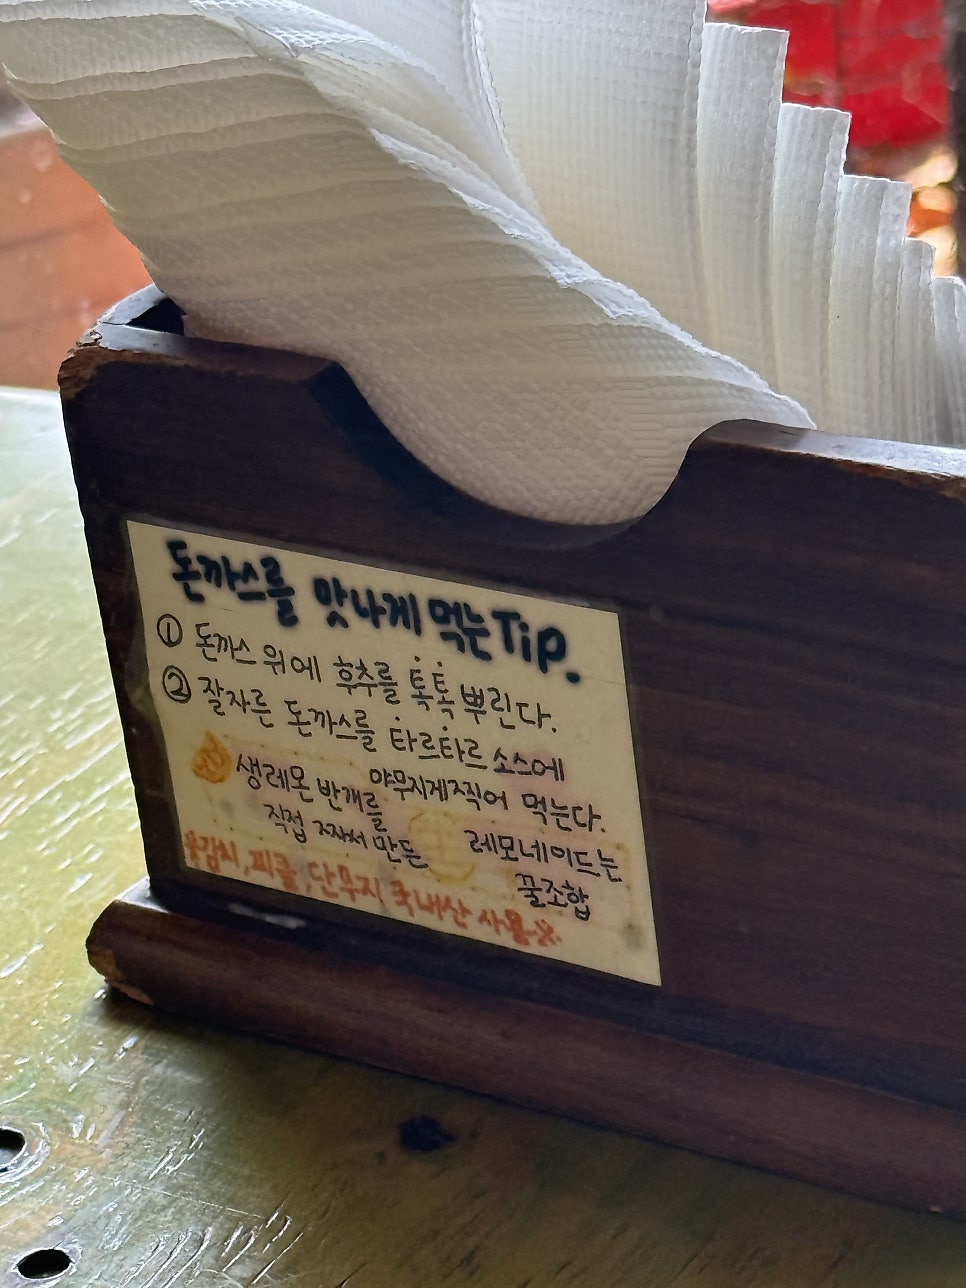 돈까스를 맛나게 먹는 Tip.
① 돈까스 위에 후추를 톡톡 뿌린다.
② 잘자른 돈까스를 타르타르 소스에
야무지게 찍어 먹는다.
생레몬 반개를
직접 짜서 만든
레모네이드는
꿀조합
※김치, 피클, 단무지 국내산 사용※